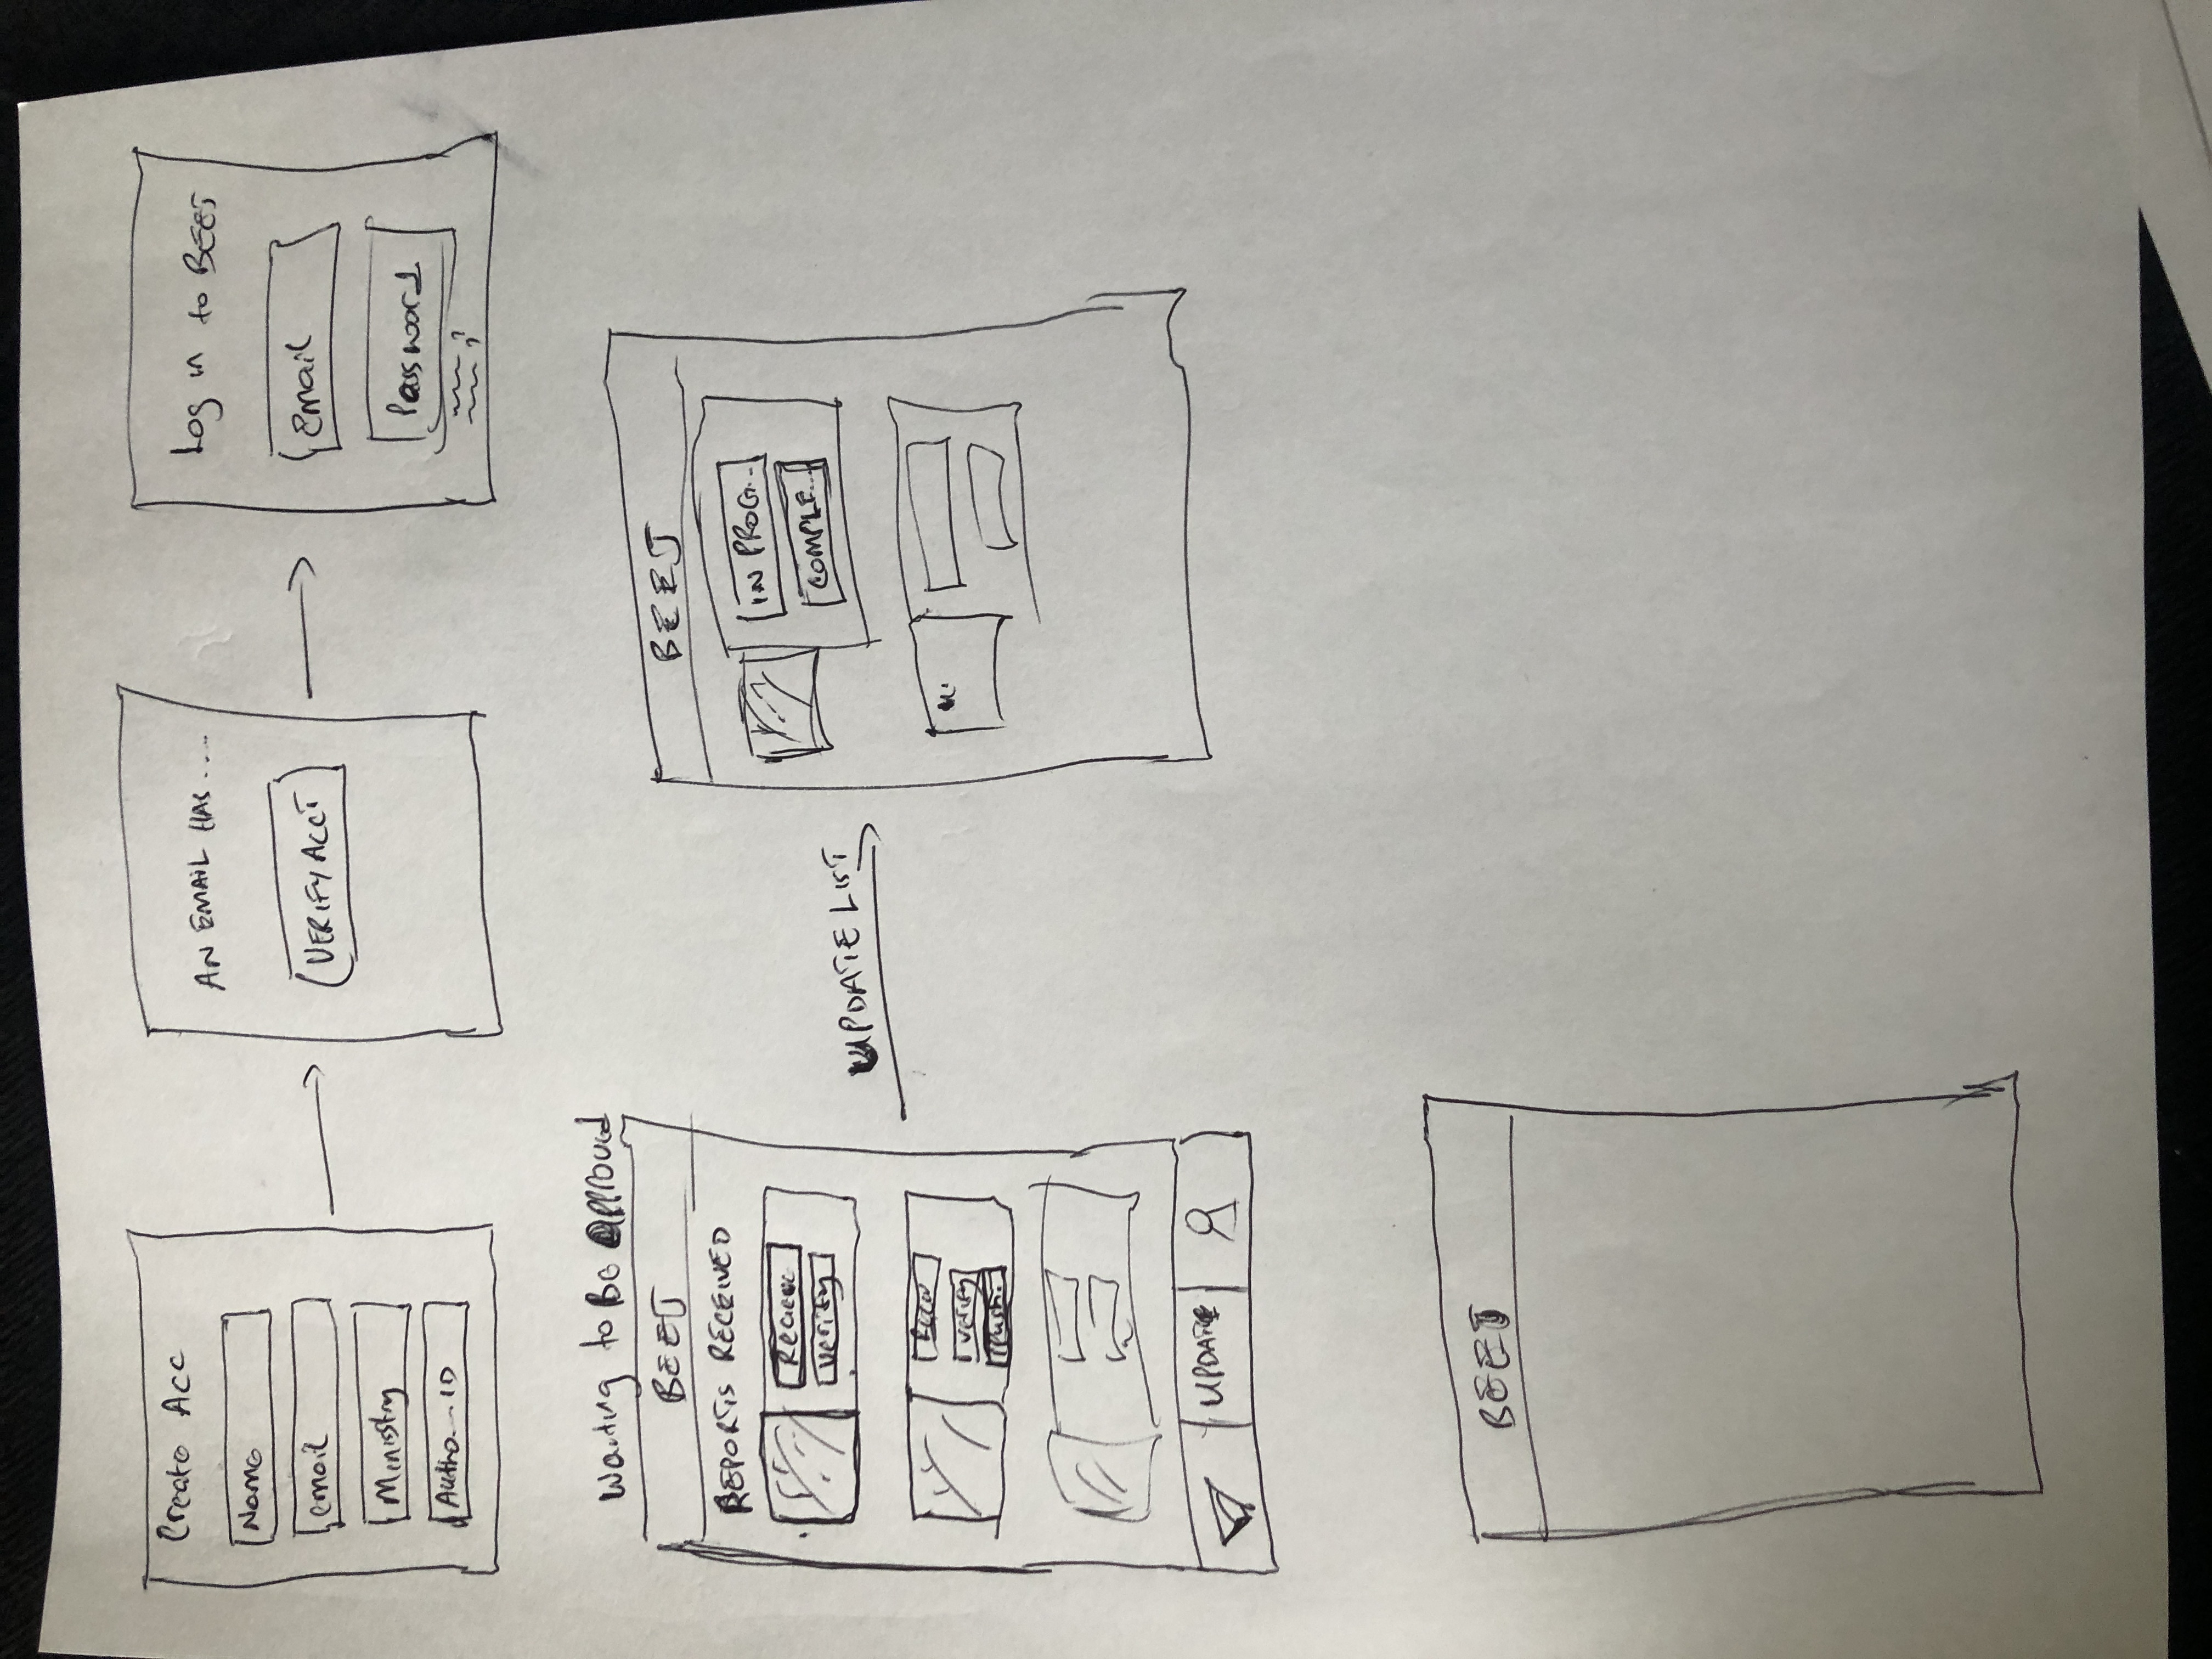 Create Acc
Name
email
Ministry
Autho...ID
AN EMAIL HAS ....
VERIFY ACCT
Log in to BEEJ
Email
Password
Waiting to Be Approved
BEEJ
REPORTS RECEIVED
Review
Verify
Verify
UPDATE
UPDATE LIST
BEEJ
IN PROG...
COMPLE...
BEEJ